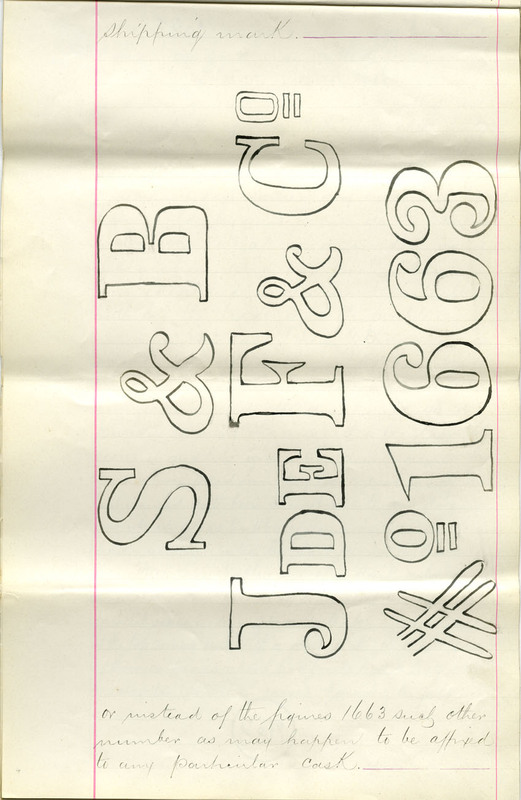 shipping mark.
S & B
J DE F & Cº
№ 1663
or instead of the figures 1663 such other
number as may happen to be affixed
to any particular cask.